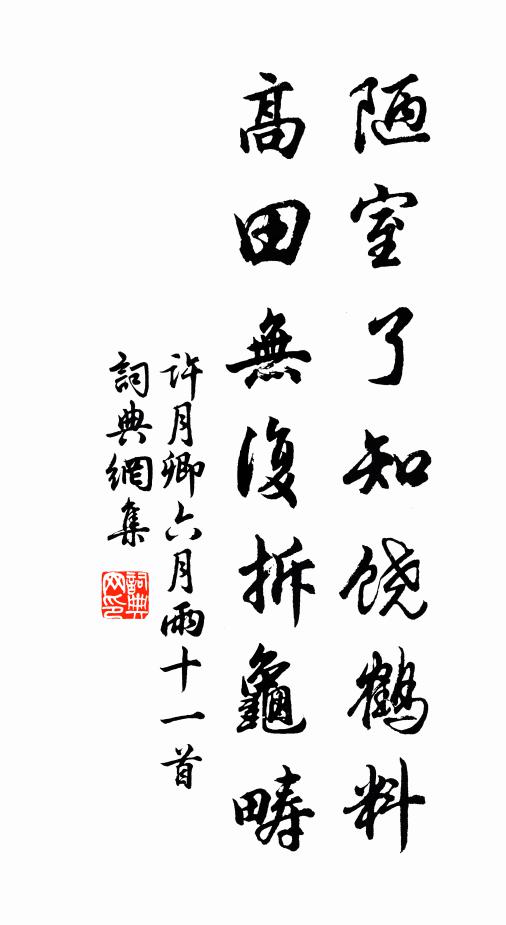 陋室了知饶鹤料
高田無復拆龜疇
许月卿六月雨十一首
詞典網集
詞典网印